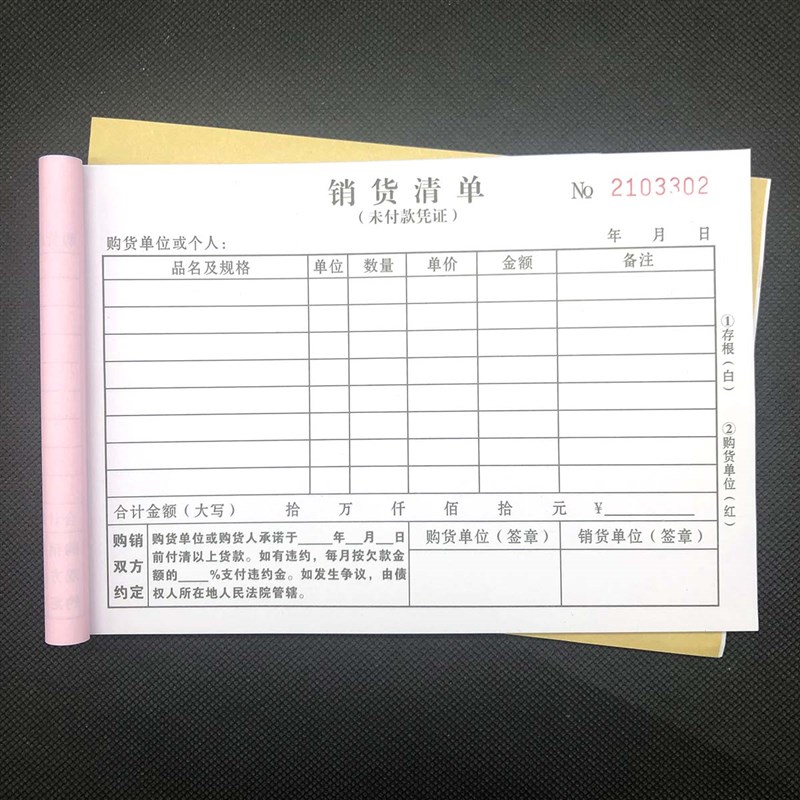 销货清单
№ 2103302
（未付款凭证）
购货单位或个人：
年 月 日
品名及规格 单位 数量 单价 金额 备注
合计金额（大写） 拾 万 仟 佰 拾 元 ¥________
购销
双方
约定
购货单位或购货人承诺于_____年___月___日
前付清以上货款。如有违约，每月按欠款金
额的____%支付违约金。如发生争议，由债
权人所在地人民法院管辖。
购货单位（签章） 销货单位（签章）
①存根（白）
②购货单位（红）